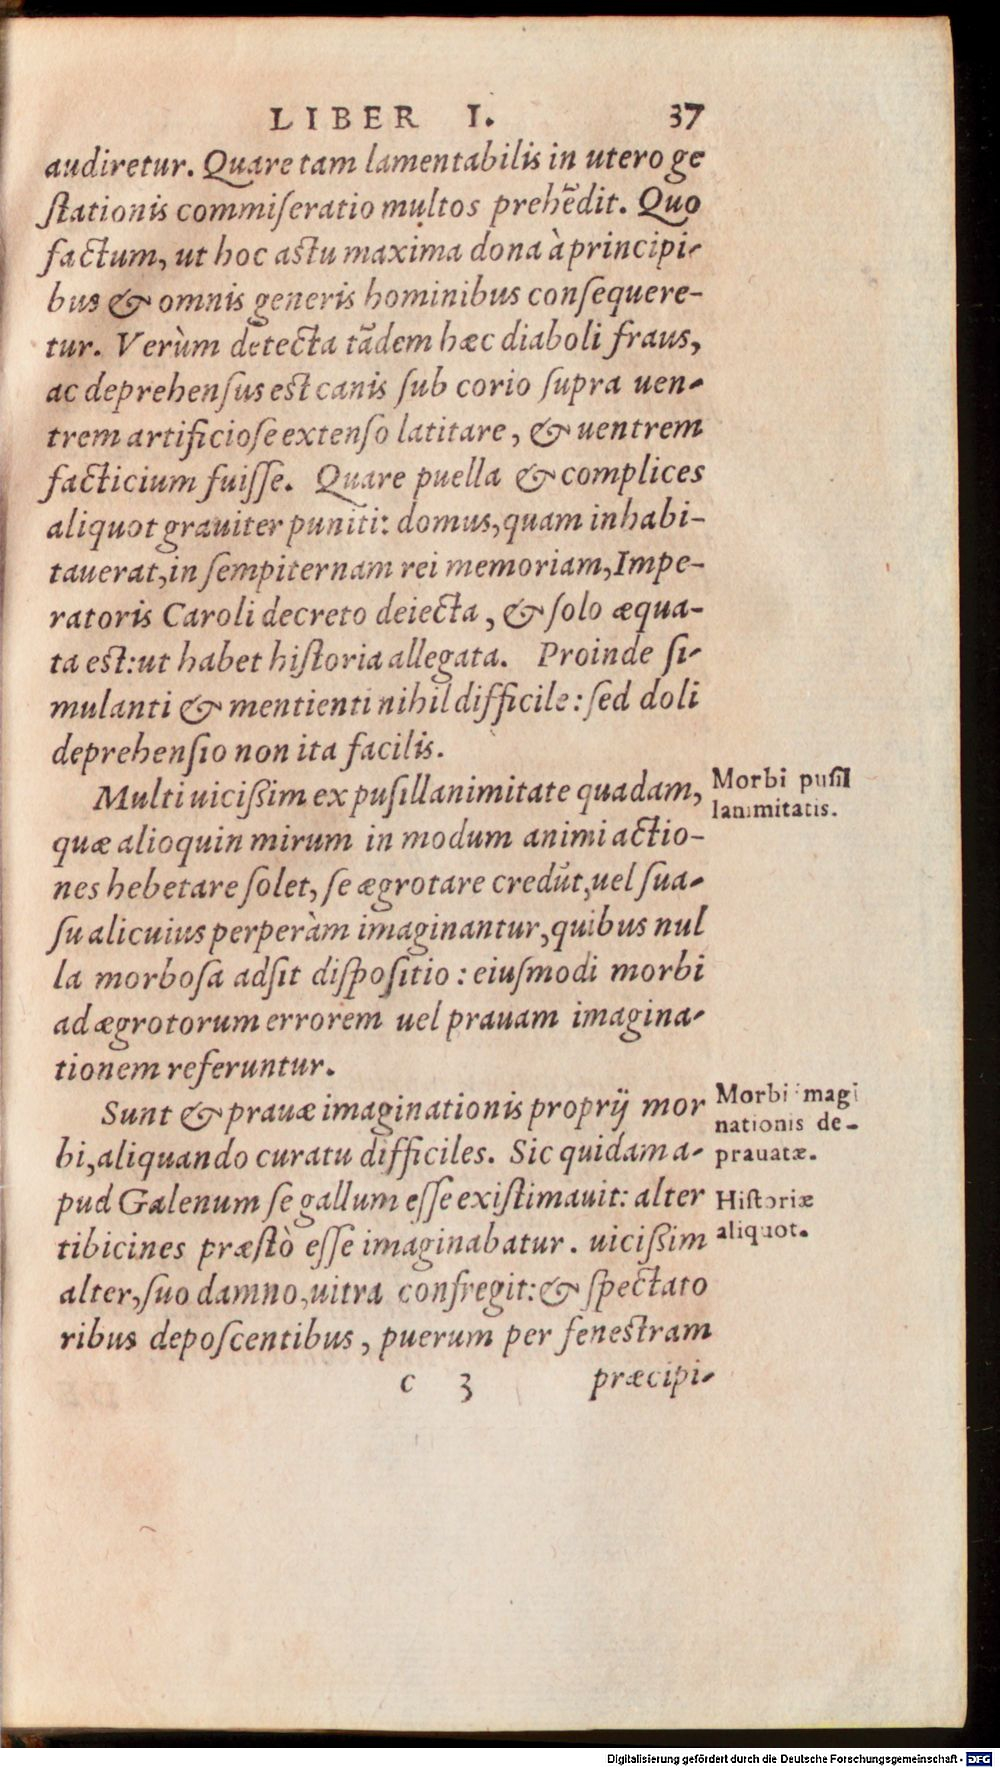 LIBER I. 37
audiretur. Quare tam lamentabilis in utero ge
ſtationis commiſeratio multos prehẽdit. Quo
factum, ut hoc astu maxima dona à principi-
bus & omnis generis hominibus conſequere-
tur. Verùm detecta tãdem hæc diaboli fraus,
ac deprehenſus est canis ſub corio ſupra uen-
trem artificioſe extenſo latitare, & uentrem
facticium fuiſſe. Quare puella & complices
aliquot grauiter puniti: domus, quam inhabi-
tauerat, in ſempiternam rei memoriam, Impe-
ratoris Caroli decreto deiecta, & ſolo æqua-
ta est: ut habet hiſtoria allegata. Proinde ſi-
mulanti & mentienti nihil difficile: ſed doli
deprehenſio non ita facilis.
Multi uicißim ex puſillanimitate quadam,
Morbi puſil
lanimitatis.
quæ alioquin mirum in modum animi actio-
nes hebetare ſolet, ſe ægrotare credũt, uel ſua-
ſu alicuius perperàm imaginantur, quibus nul
la morboſa adſit diſpoſitio: eiuſmodi morbi
ad ægrotorum errorem uel prauam imagina-
tionem referuntur.
Sunt & prauæ imaginationis proprij mor
Morbi imagi
nationis de-
prauatæ.
bi, aliquando curatu difficiles. Sic quidam a-
pud Galenum ſe gallum eſſe exiſtimauit: alter
Hiſtoriæ
aliquot.
tibicines præſtò eſſe imaginabatur. uicißim
alter, ſuo damno, uitra confregit: & ſpectato
ribus depoſcentibus, puerum per fenestram
c 3 præcipi-
Digitalisierung gefördert durch die Deutsche Forschungsgemeinschaft - DFG